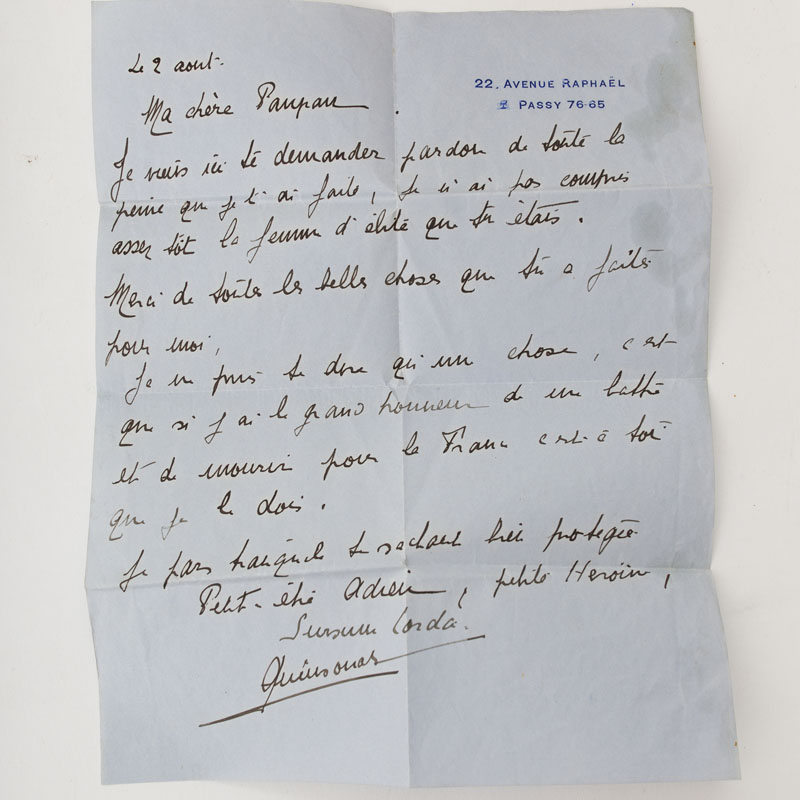 Le 2 aout.
22, AVENUE RAPHAËL
PASSY 76-65
Ma chère Panpan
Je viens ici te demander pardon de toute la
peine que je t'ai faite, je n'ai pas compris
assez tôt la femme d'élite que tu étais.
Merci de toutes les belles choses que tu a faites
pour moi,
Je ne puis te dire qu'une chose, c'est
que si j'ai le grand honneur de me battre
et de mourir pour la France c'est à toi
que je le dois.
Je pars tranquile te sachant bien protegée
Petit-être Adieu, petite Heroïne,
Sursum Corda.
Quinsonas